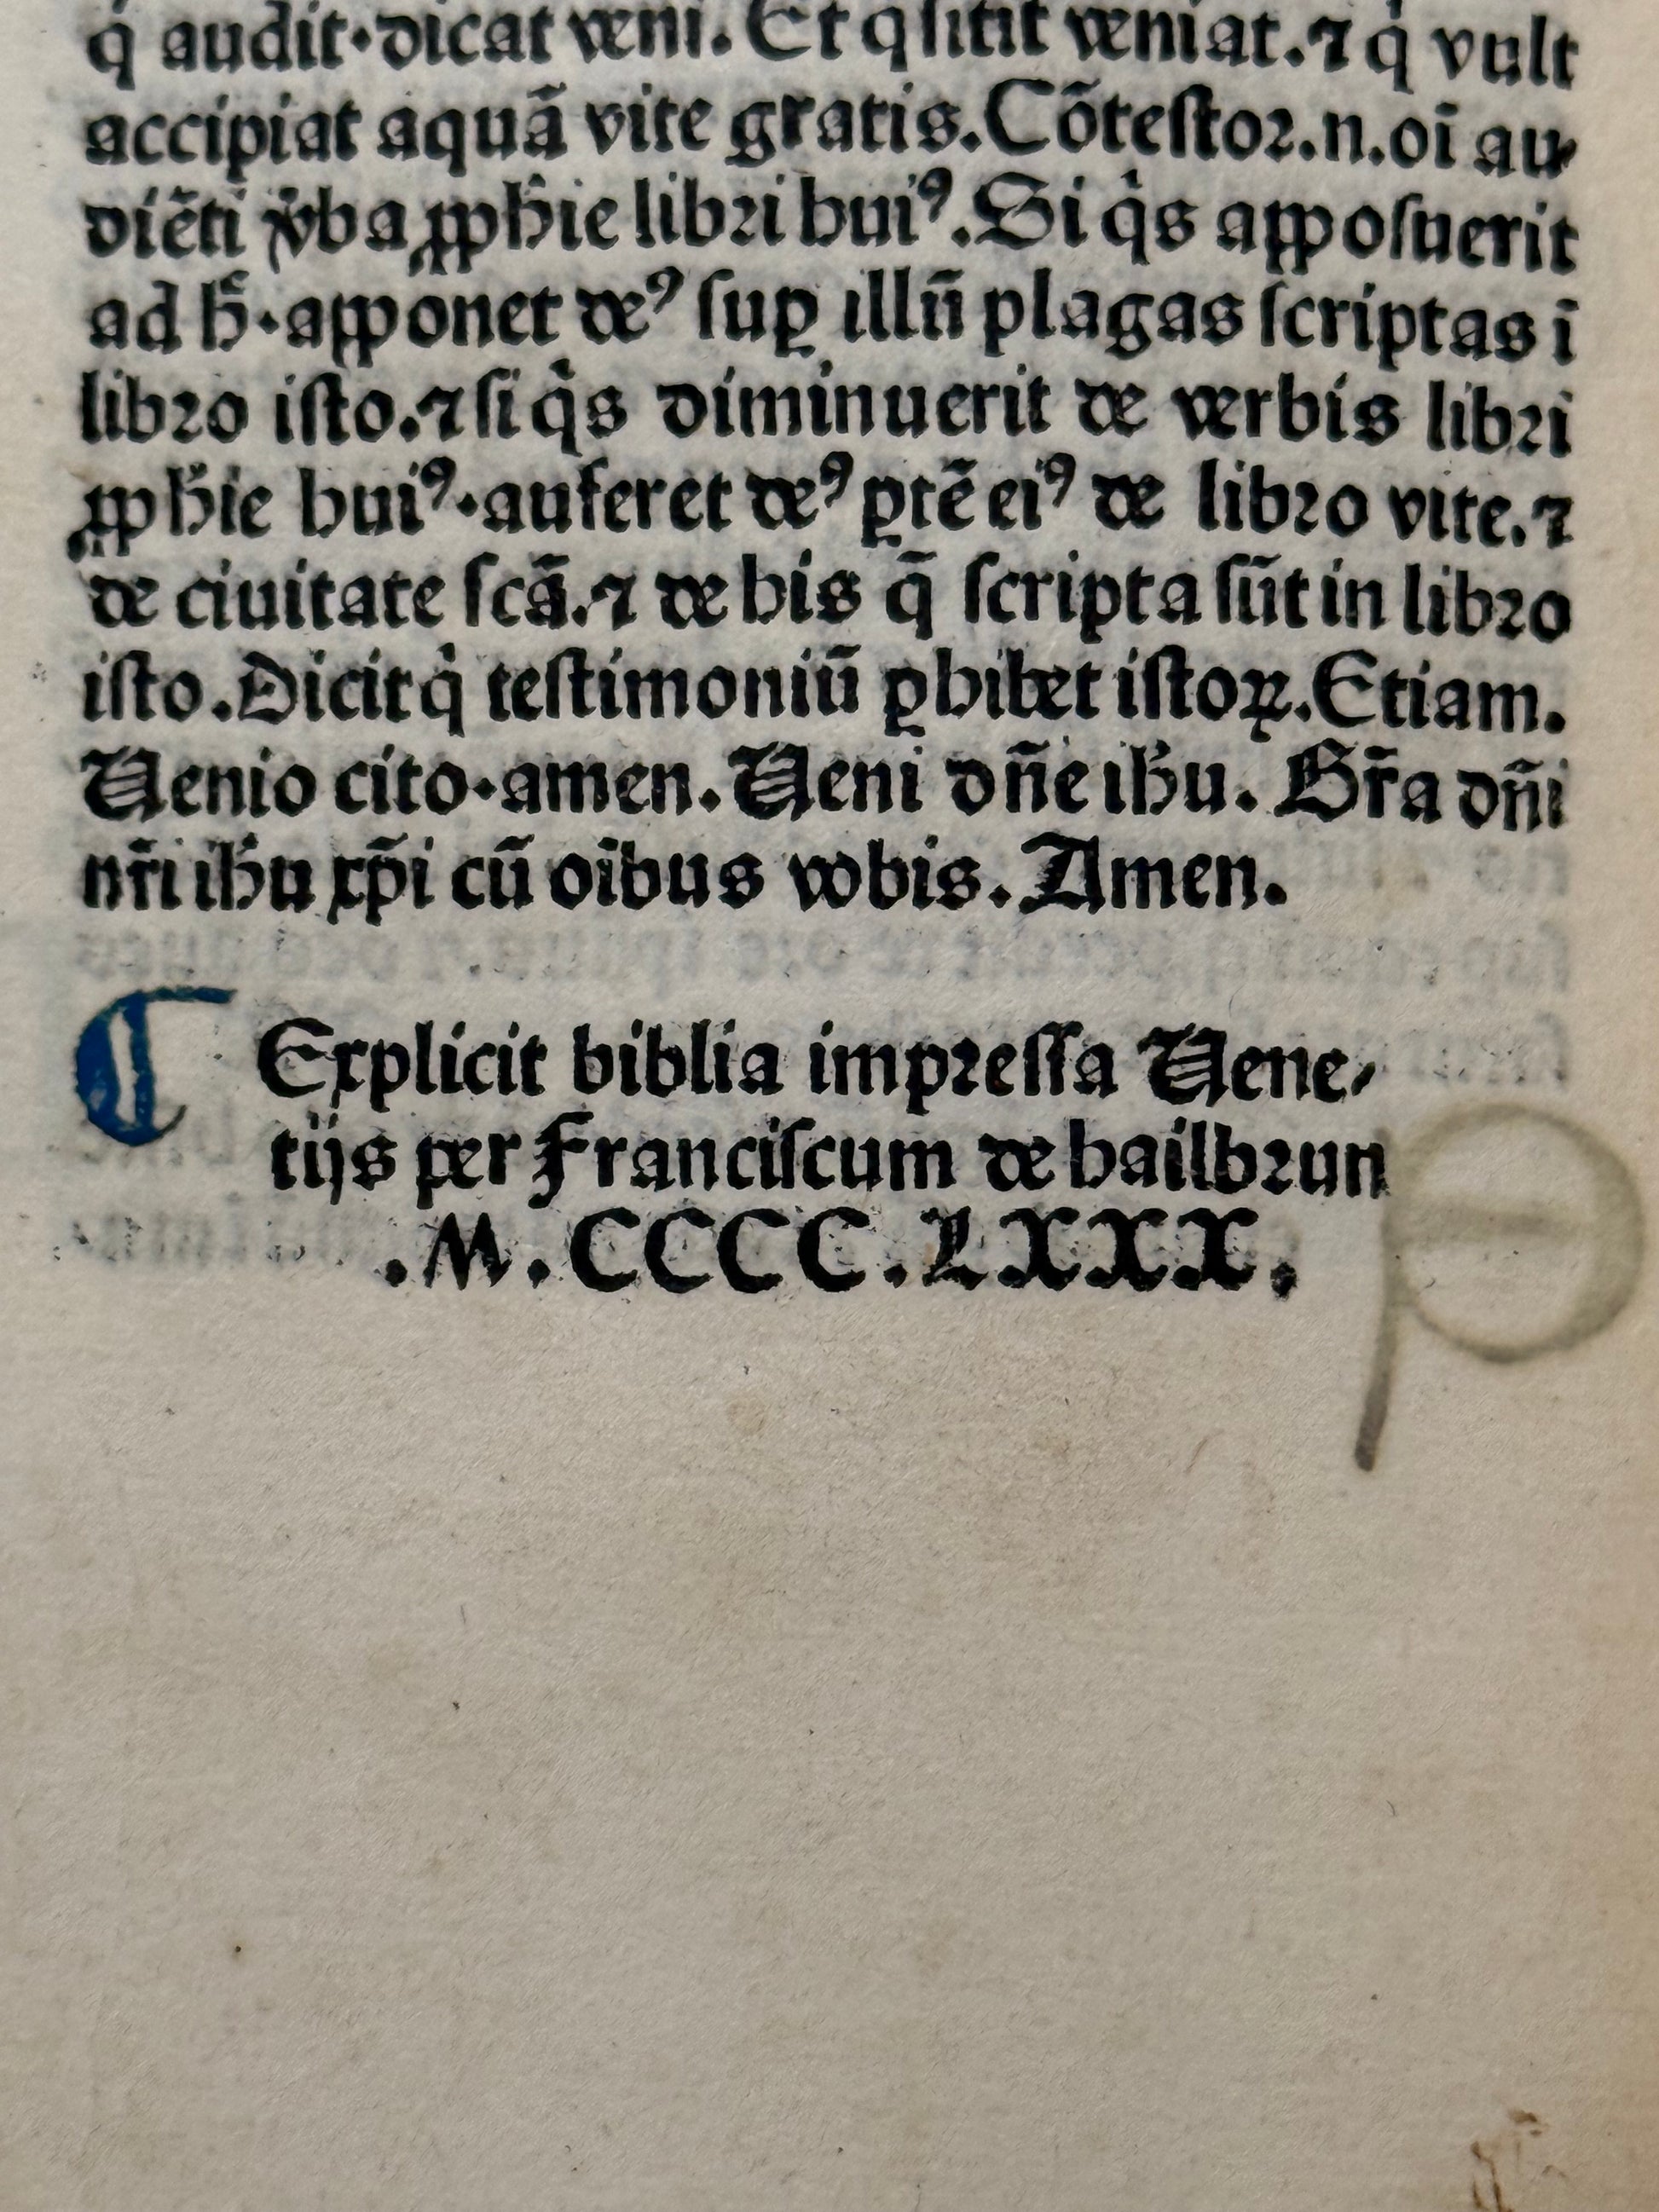 q̇ audit·dicat veni. Et q sitit veniat.⁊ q̇ vult
accipiat aquā vite gratis. Cōteſtoꝛ.n.oī au⸗
diēti v̾ba ꝓphīe libꝛi huiꝰ. Si q̇s appoſuerit
ad h̄·apponet deꝰ ſuꝑ illū plagas ſcriptas ī
libꝛo iſto.⁊ ſi q̇s diminuerit de verbis libꝛi
ꝓphīe huiꝰ·auferet deꝰ ꝑtē eiꝰ de libꝛo vite.⁊
de ciuitate ſcā.⁊ de his q̄ ſcripta ſūt in libꝛo
iſto. Dicit q̇ teſtimoniū ꝑhibet iſtoꝝ. Etiam.
Uenio cito·amen. Ueni dn̄e ihu̅. Gr̄a dn̄i
nr̄i ihu̅ xp̄i cū oībus vobis. Amen.
Explicit biblia impꝛeſſa Uene⸗
tijs per Franciſcum de hailbꝛun
.M.CCCC.LXXX.